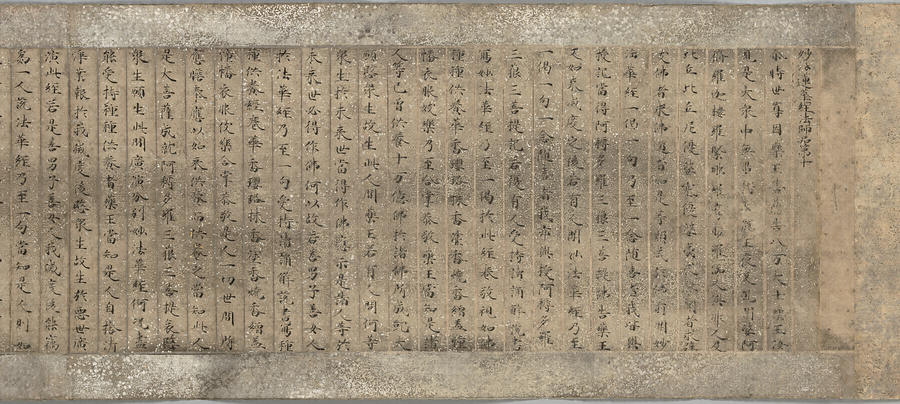 妙法蓮華經法師品第十
爾時世尊因藥王菩薩告八万大士藥王汝
見是大衆中無量諸天龍王夜叉乾闥婆阿
脩羅迦樓羅緊那羅摩睺羅伽人與非人及
比丘比丘尼優婆塞優婆夷求聲聞者求辟
支佛者求佛道者如是等類咸於佛前聞妙
法華經一偈一句乃至一念隨喜者我皆與
授記當得阿耨多羅三藐三菩提佛告藥王
又如來滅度之後若有人聞妙法華經乃至
一偈一句一念隨喜者我亦與授阿耨多羅
三藐三菩提記若復有人受持讀誦解說書
寫妙法華經乃至一偈於此經卷敬視如佛
種種供養華香瓔珞抹香塗香燒香繒蓋幢
幡衣服妓樂乃至合掌恭敬藥王當知是諸
人等已曾供養十万億佛於諸佛所成就大
願愍衆生故生此人間藥王若有人問何等
衆生於未來世當得作佛應示是諸人等於
未來世必得作佛何以故若善男子善女人
於法華經乃至一句受持讀誦解說書寫種
種供養經卷華香瓔珞抹香塗香燒香繒蓋
幢幡衣服伎樂合掌恭敬是人一切世間所
應瞻奉應以如來供養而供養之當知此人
是大菩薩成就阿耨多羅三藐三菩提哀愍
衆生願生此間廣演分別妙法華經何況盡
能受持種種供養者藥王當知是人自捨清
淨業報於我滅度後愍衆生故生於惡世廣
演此經若是善男子善女人我滅度後能竊
爲一人說法華經乃至一句當知是人則如